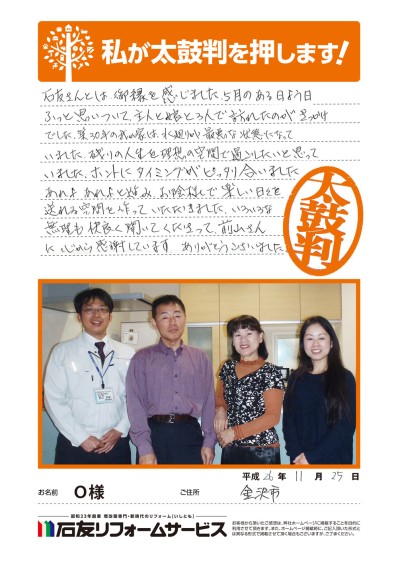 私が太鼓判を押します!
石友さんとは、御縁を感じました。5月のある日よう日
ふっと思いついて、主人と娘と3人で訪れたのがきっかけ
でした。築 の我が家は、水廻りが最悪な状態になって
いました。残りの人生を理想の空間で過ごしたいと思って
いました。ホントにタイミングがピッタリ合いました
あれよ あれよと進み、お陰様で楽しい日々を
送れる空間を作っていただきました。いろいろな
無理も快よく聞いてくださって、前山さん
に心から感謝しています ありがとうございました。
太鼓判
平成 26 年 11 月 25 日
お名前 O様 ご住所 金沢市
昭和23年創業 増改築専門・新時代のリフォーム(いしとも)
石友リフォームサービス
お客様から頂いたご感想は、弊社ホームページに掲載することを目的に
利用させて頂きます。また、ホームページ掲載時に、ご記入頂いた形式と
は異なる形式で掲載させて頂く場合もございますが、ご了承ください。